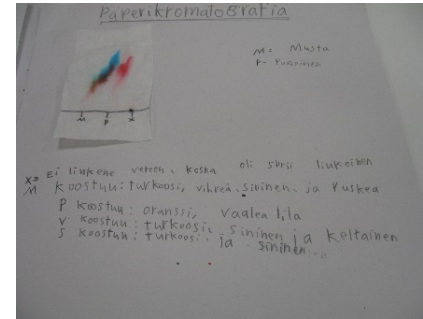 Paperikromatografia
M= Musta
P= Punainen
M P X
X= Ei liukene veteen, koska oli spriiliukoinen
M koostuu: turkoosi, vihreä, sininen ja ruskea
P koostuu: oranssi, vaalea lila
V koostuu: turkoosi, sininen ja keltainen
S koostuu: turkoosi ja sininen